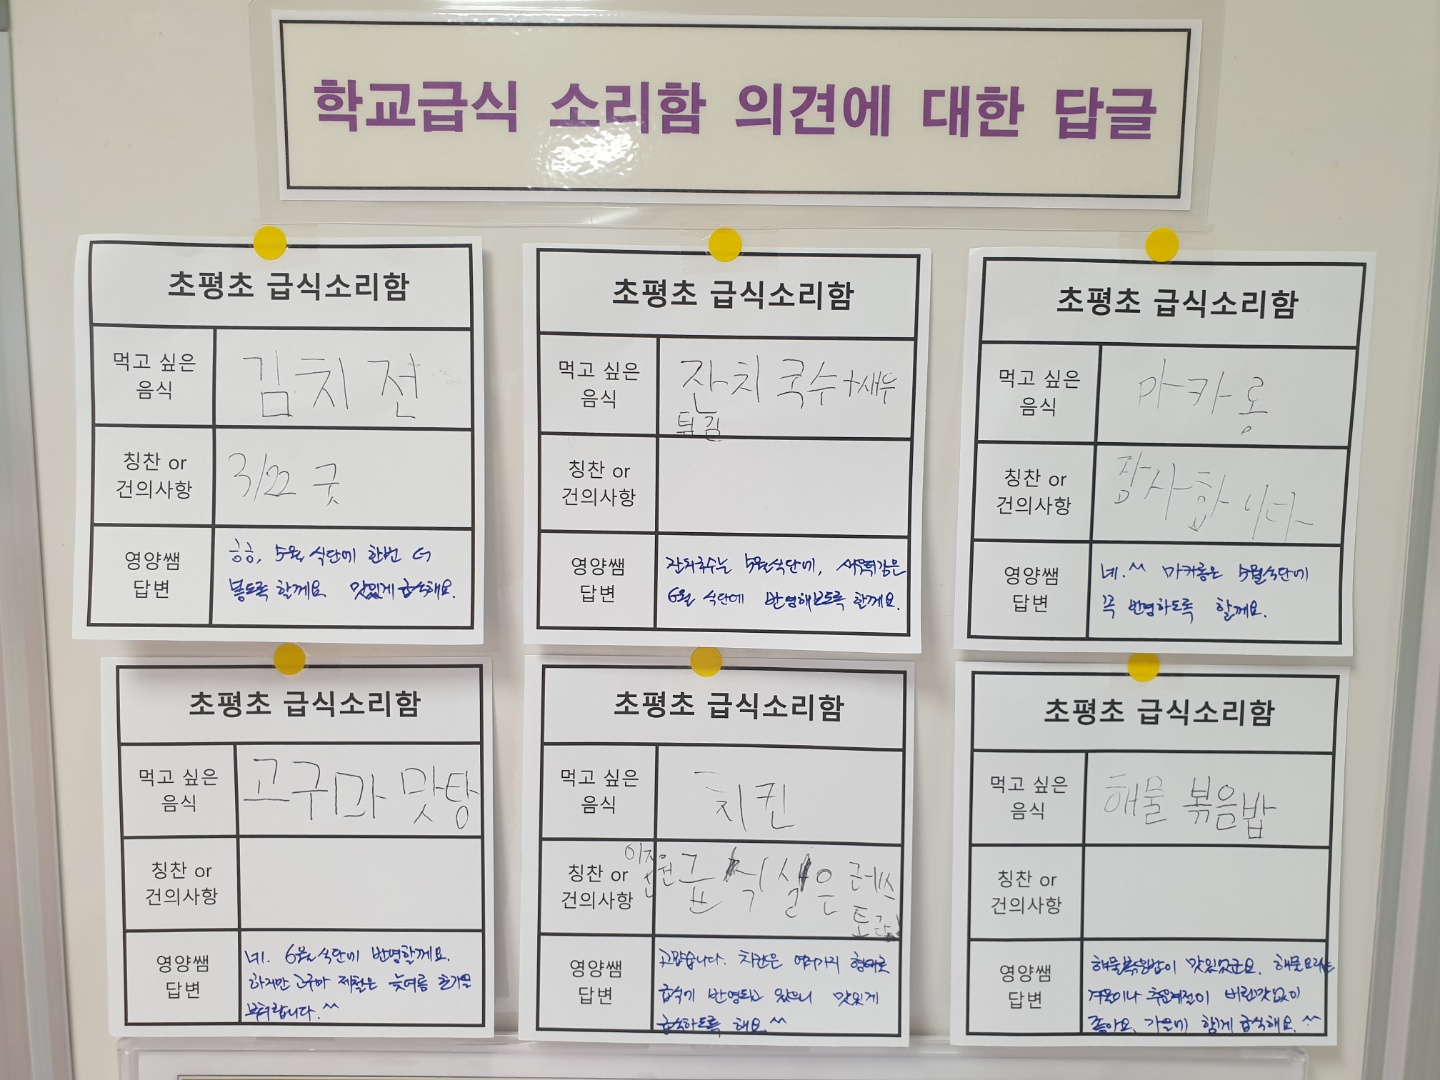 학교급식 소리함 의견에 대한 답글
초평초 급식소리함
먹고 싶은
음식
김치전
칭찬 or
건의사항
3/22 굿
영양쌤
답변
5월 식단에 한번 더
할께요 맛있게 급식해요.
초평초 급식소리함
먹고 싶은
음식
잔치국수+새우
튀김
칭찬 or
건의사항
영양쌤
답변
잔치국수는 5월식단에, 새우튀김은
6월 식단에 반영해보도록 할께요.
초평초 급식소리함
먹고 싶은
음식
마카롱
칭찬 or
건의사항
감사합니다
영양쌤
답변
네.^^ 마카롱은 5월식단에
꼭 반영하도록 할께요.
초평초 급식소리함
먹고 싶은
음식
고구마 맛탕
칭찬 or
건의사항
영양쌤
답변
네. 6월 식단에 반영할께요.
하지만 고구마 제철은 늦여름 초가을
부터랍니다.^^
초평초 급식소리함
먹고 싶은
음식
치킨
칭찬 or
건의사항
급식실은 레스
토랑!
영양쌤
답변
고맙습니다. 치킨은 여러가지 형태로
급식에 반영되고 있으니 맛있게
급식하도록 해요^^
초평초 급식소리함
먹고 싶은
음식
해물 볶음밥
칭찬 or
건의사항
영양쌤
답변
해물볶음밥이 맛있었군요. 해물요리는
겨울이나 추운계절이 비린맛없이
좋아요. 가을에 함께 급식해요.^^